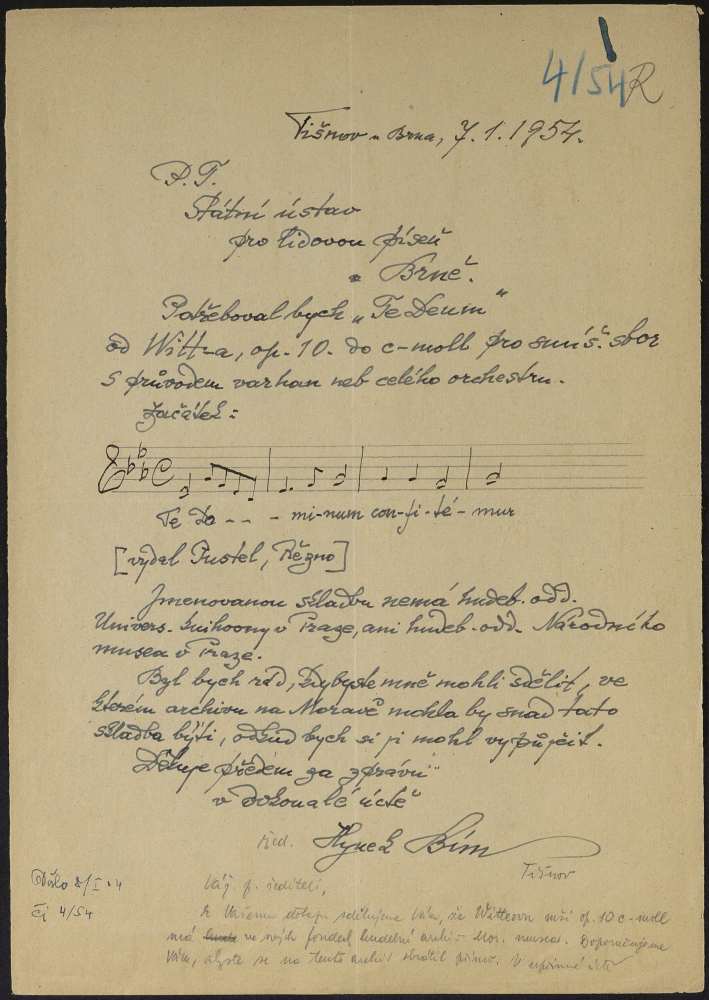 4/54 R
Tišnov u Brna, 7.1.1954.
P.T.
Státní ústav
pro lidovou píseň
v Brně.
Potřeboval bych „Te Deum"
od Witt-a, op. 10. do c-moll pro smíš. sbor
s průvodem varhan neb celého orchestru.
Začátek:
Te Do - - - mi-num con-fi-té-mur
[vydal Pustet, Řezno]
Jmenovanou skladbu nemá hudeb. odd.
Univers. knihovny v Praze, ani hudeb. odd. Národního
musea v Praze.
Byl bych rád, kdybyste mně mohli sdělit, ve
kterém archivu na Moravě mohla by snad tato
skladba býti, odkud bych si ji mohl vypůjčit.
Děkuje předem za zprávu
v dokonalé úctě
řed. Hynek Bím
Tišnov
Došlo 8/I 54
Čj 4/54
Váž. p. řediteli,
k Vašemu dotazu sdělujeme Vám, že Wittovu mši op. 10 c-moll
má ve svých fondech hudební archiv Mor. musea. Doporučujeme
Vám, abyste se na tento archiv obrátil přímo. V upřímné úctě